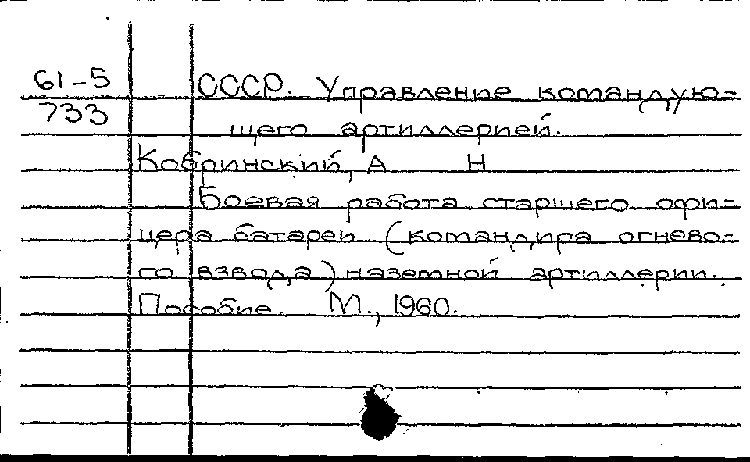 61-5
733
СССР. Управление командую-
щего артиллерией.
Кобринский, А Н
Боевая работа старшего офи-
цера батареи (командира огнево-
го взвода) наземной артиллерии.
Пособие. М., 1960.